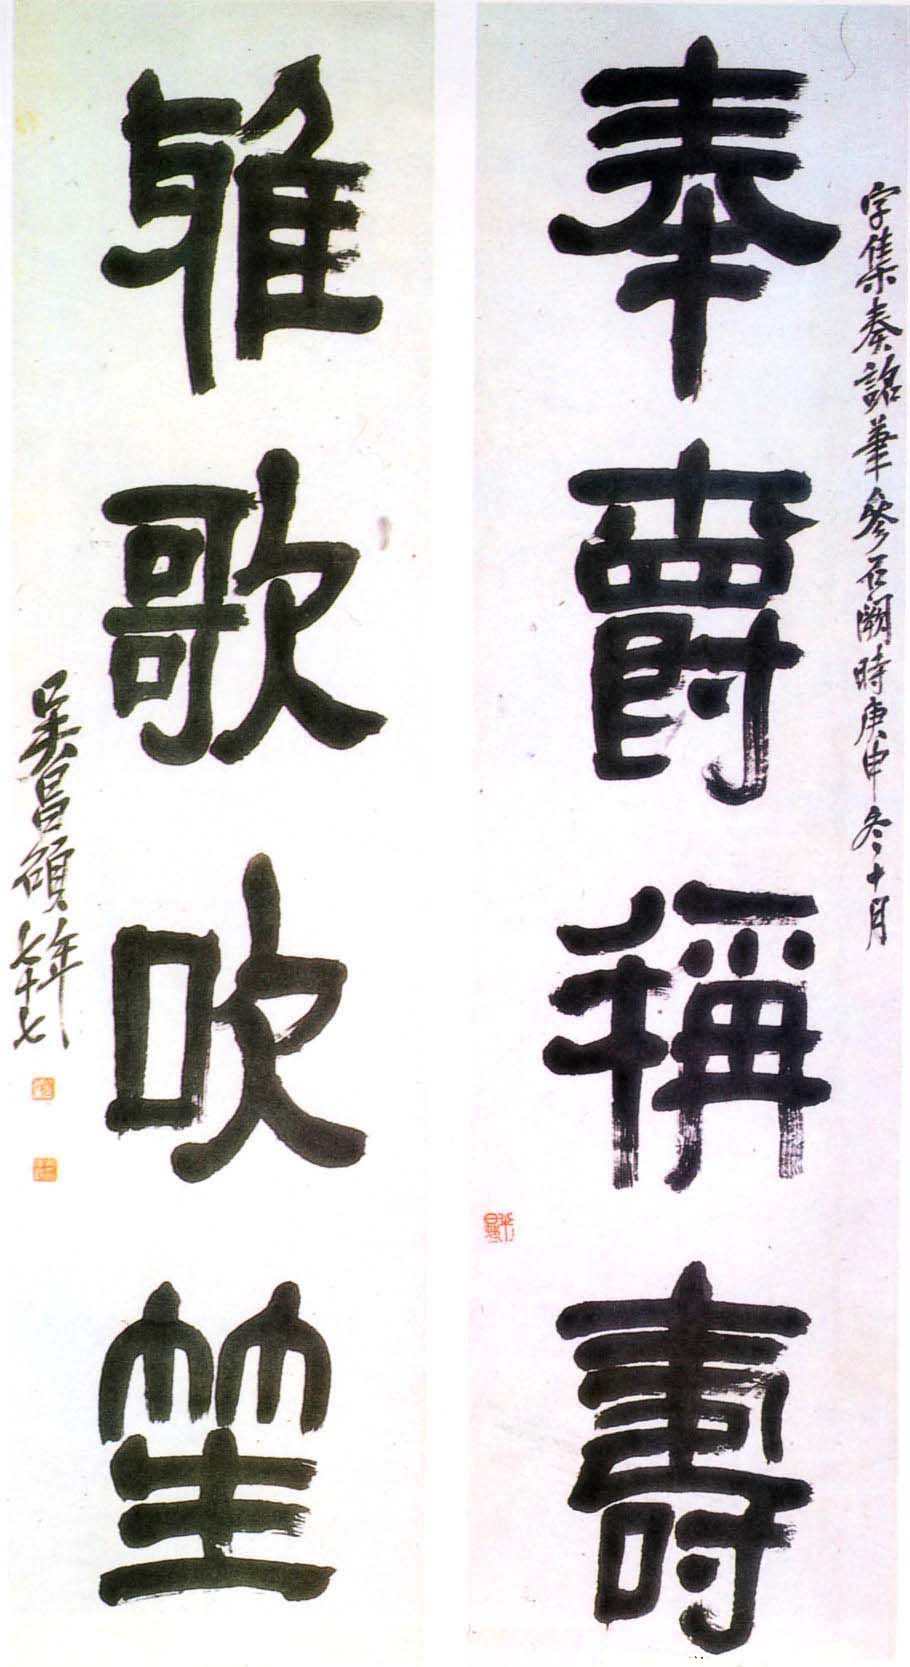 字集秦詔筆參石闕時庚申冬十月
奉爵稱壽
雅歌吹笙
吳昌碩年七十七